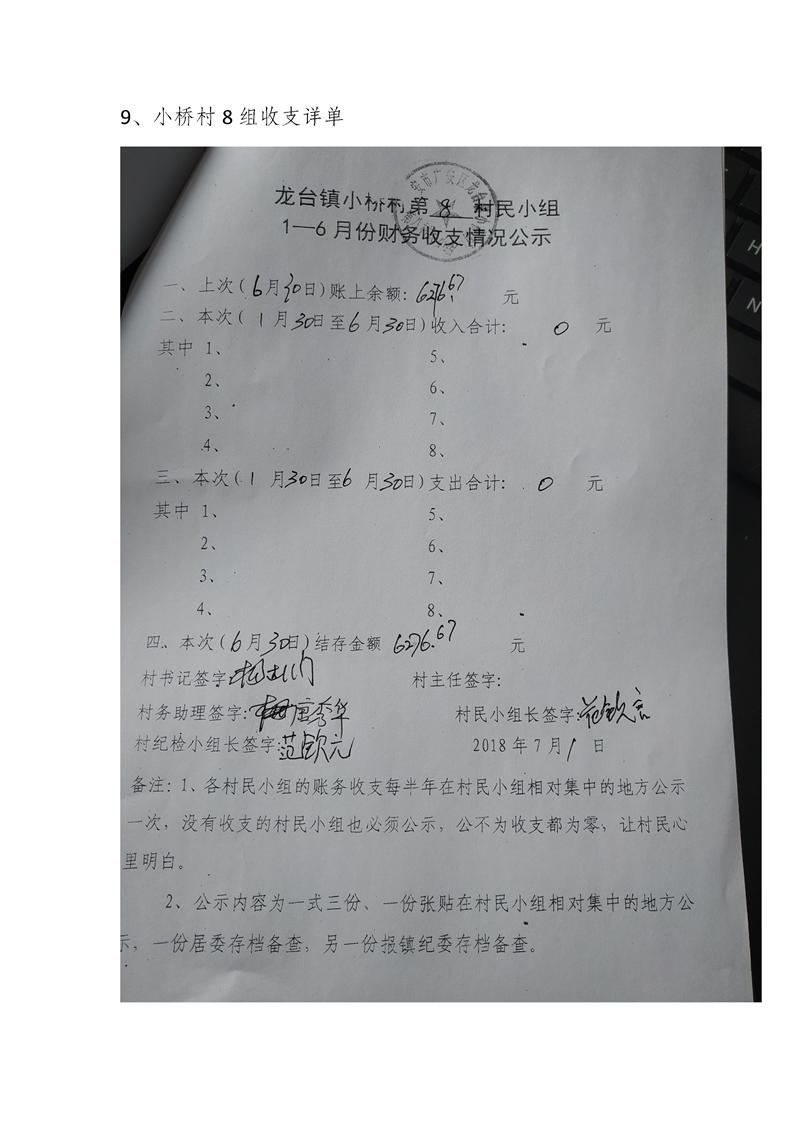 9、小桥村 8 组收支详单
龙台镇小桥村第 8 村民小组
1—6 月份财务收支情况公示
一、上次(6月30日)账上余额: 6276.67 元
二、本次( 1 月30日至6月30日)收入合计: 0 元
其中 1、 5、
2、 6、
3、 7、
4、 8、
三、本次( 1 月30日至6 月30日)支出合计: 0 元
其中 1、 5、
2、 6、
3、 7、
4、 8、
四、本次(6月30日)结存金额 6276.67 元
村书记签字: 村主任签字:
村务助理签字: 唐秀华 村民小组长签字:
村纪检小组长签字: 范钦元 2018 年 7 月 1 日
备注: 1、各村民小组的账务收支每半年在村民小组相对集中的地方公示
一次, 没有收支的村民小组也必须公示, 公不为收支都为零, 让村民心
里明白。
2、公示内容为一式三份、一份张贴在村民小组相对集中的地方公
示, 一份居委存档备查, 另一份报镇纪委存档备查。